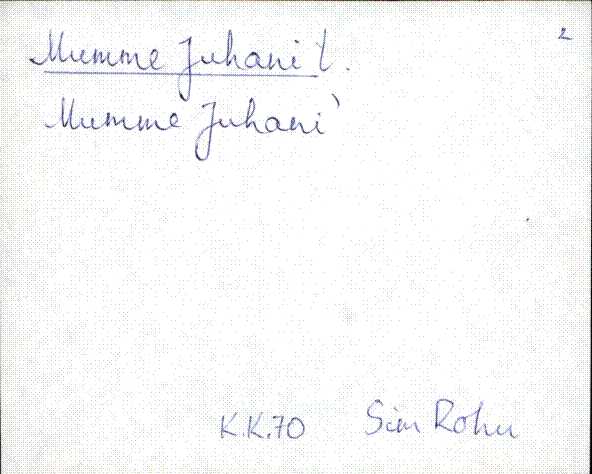 2
Mumme Juhani t.
Mumme` Juhani`
K.K.70 Sim Rohu